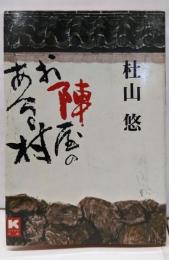 杜山悠
お陣屋の
ある村
K